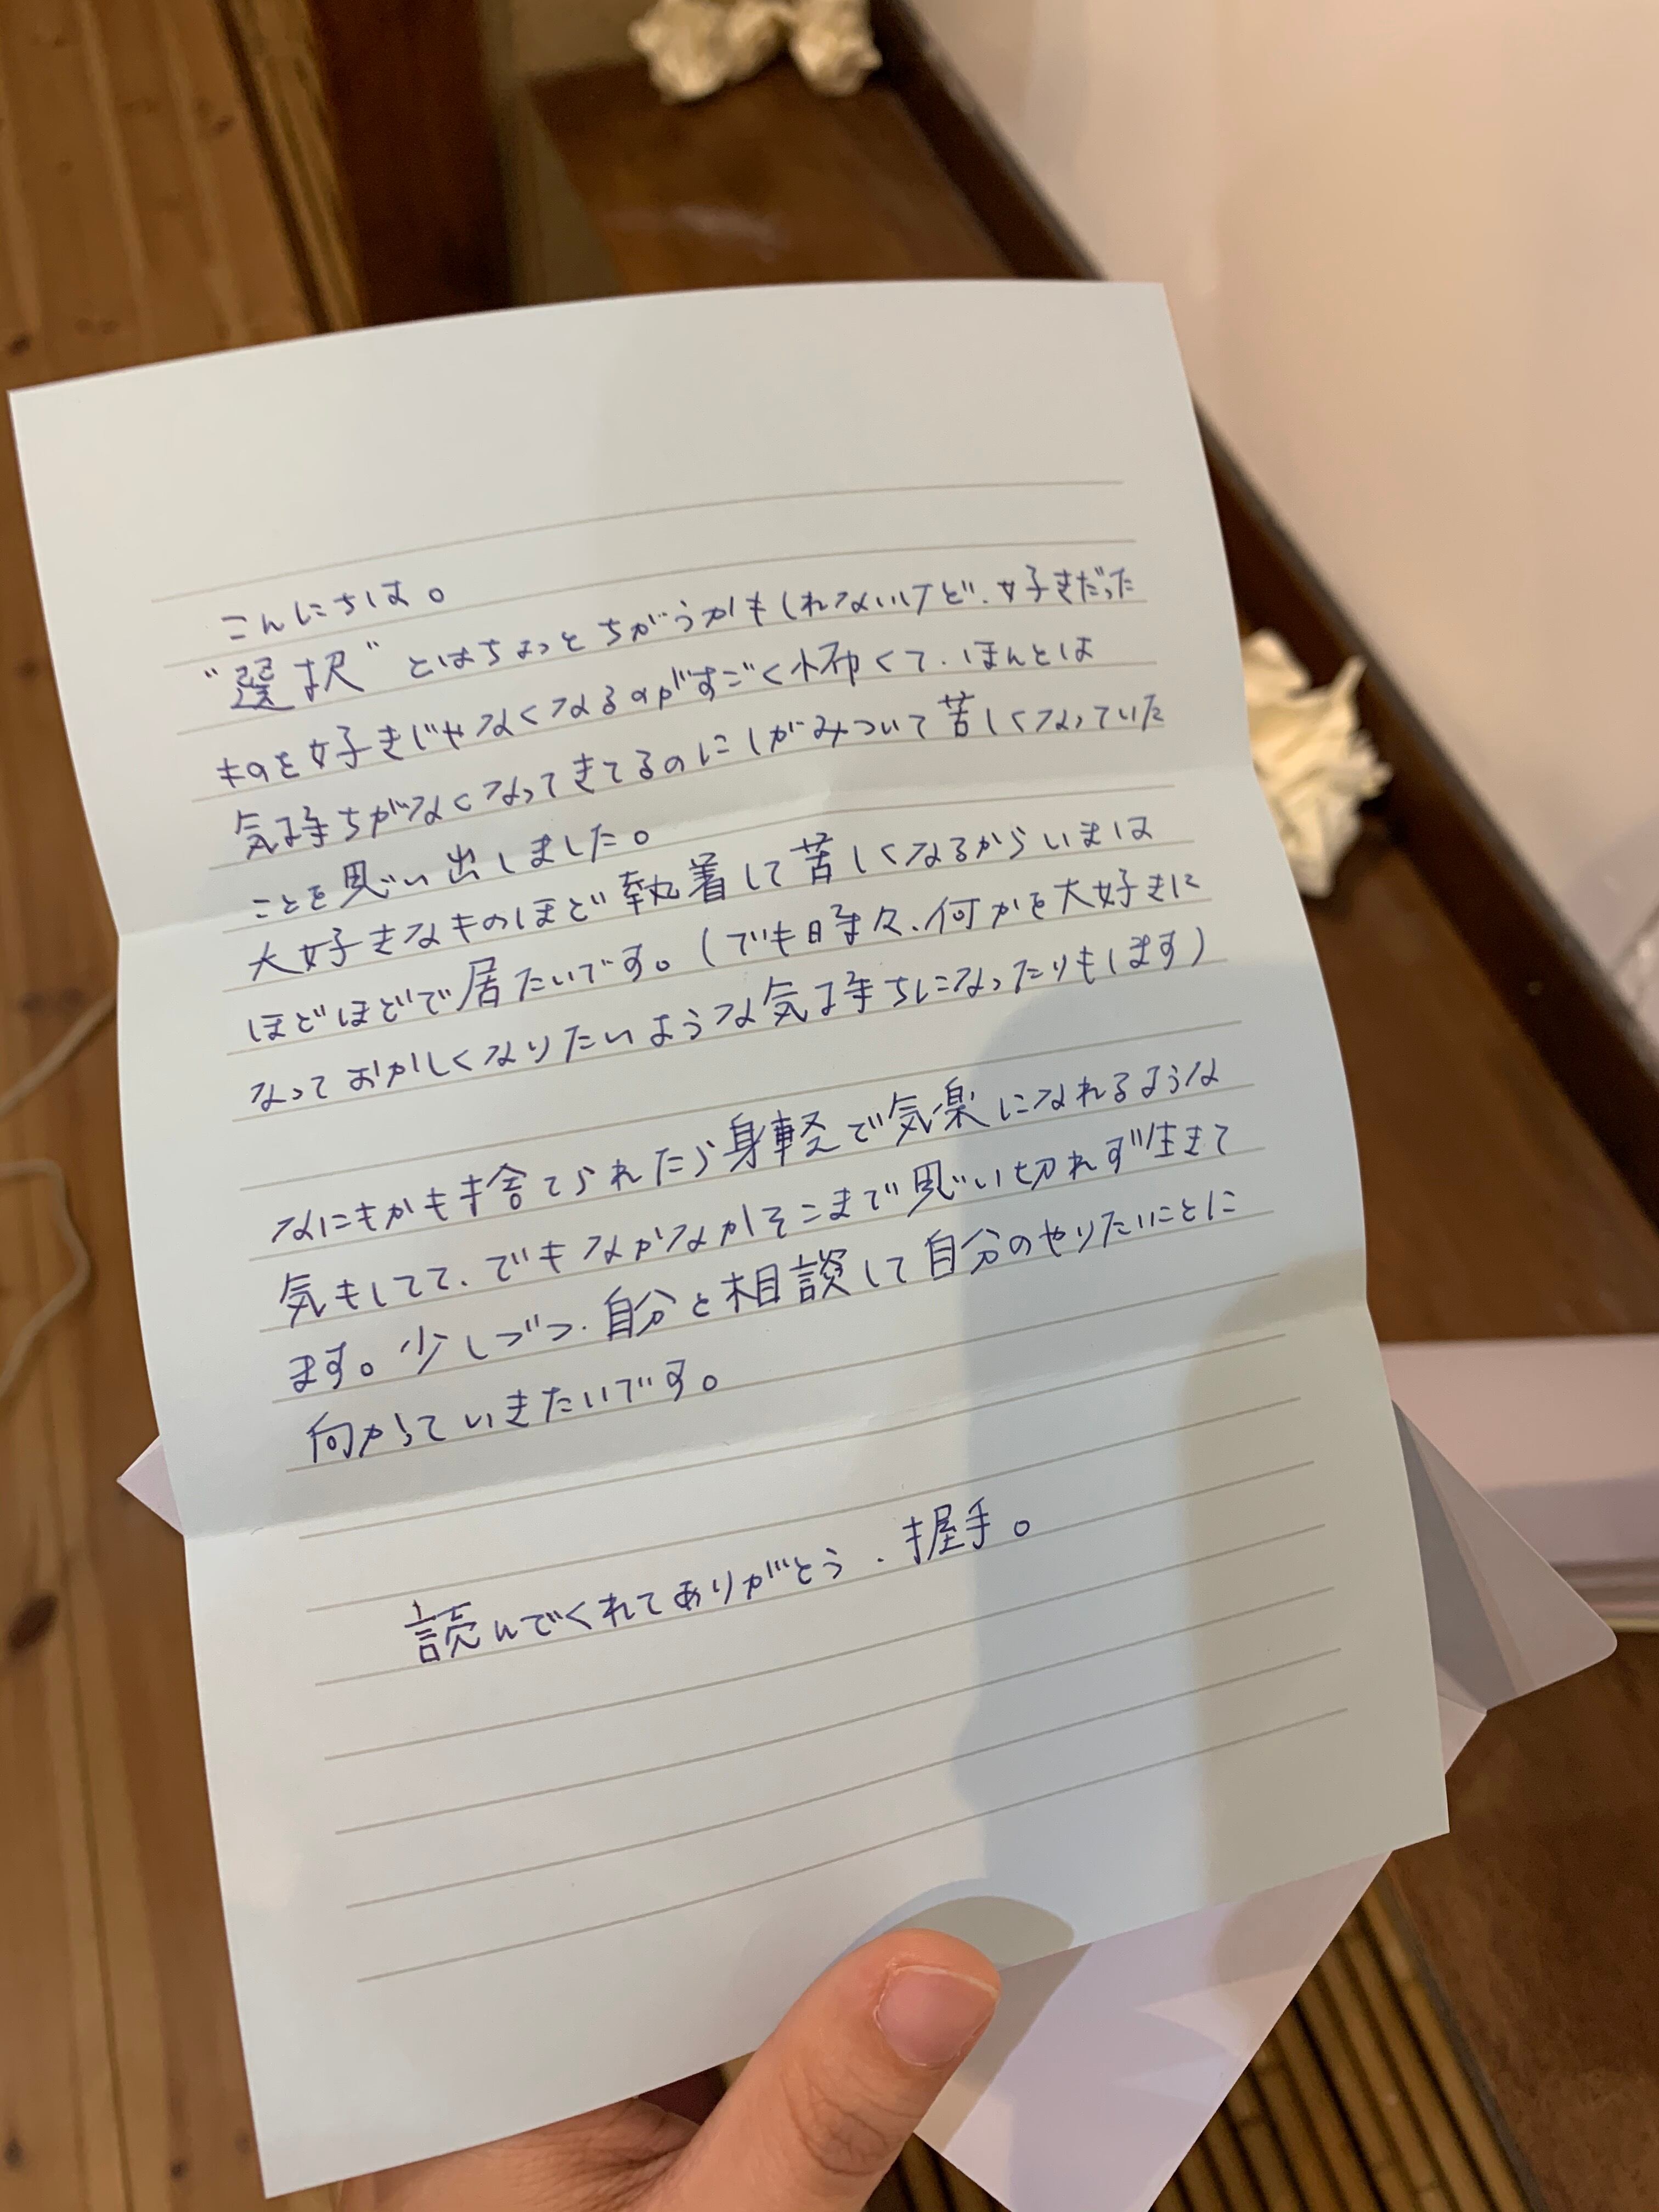 こんにちは。
"選択" とはちょっとちがうかもしれないけど、好きだった
ものを好きじゃなくなるのがすごく怖くて、ほんとは
気持ちがなくなってきてるのにしがみついて苦しくなっていた
ことを思い出しました。
大好きなものほど執着して苦しくなるからいまは
ほどほどで居たいです。(でも時々、何かを大好きに
なっておかしくなりたいような気持ちになったりもします)
なにもかも捨てられたら身軽で気楽になれるような
気もしてて、でもなかなかそこまで思い切れず生きて
ます。少しづつ、自分と相談して自分のやりたいことに
向かっていきたいです。
読んでくれてありがとう、握手。